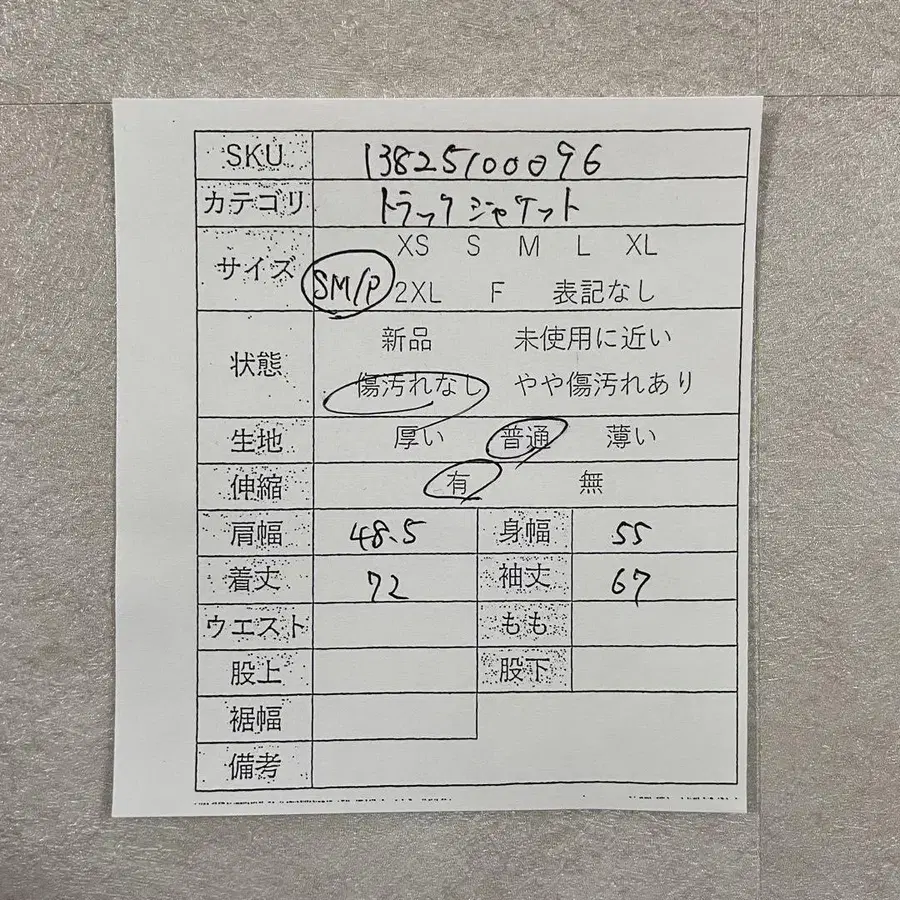 SKU 13825100096
カテゴリ トラックジャケット
サイズ XS S M L XL
SM/P 2XL F 表記なし
状態 新品 未使用に近い
傷汚れなし やや傷汚れあり
生地 厚い 普通 薄い
伸縮 有 無
肩幅 48.5 身幅 55
着丈 72 袖丈 67
ウエスト もも
股上 股下
裾幅
備考